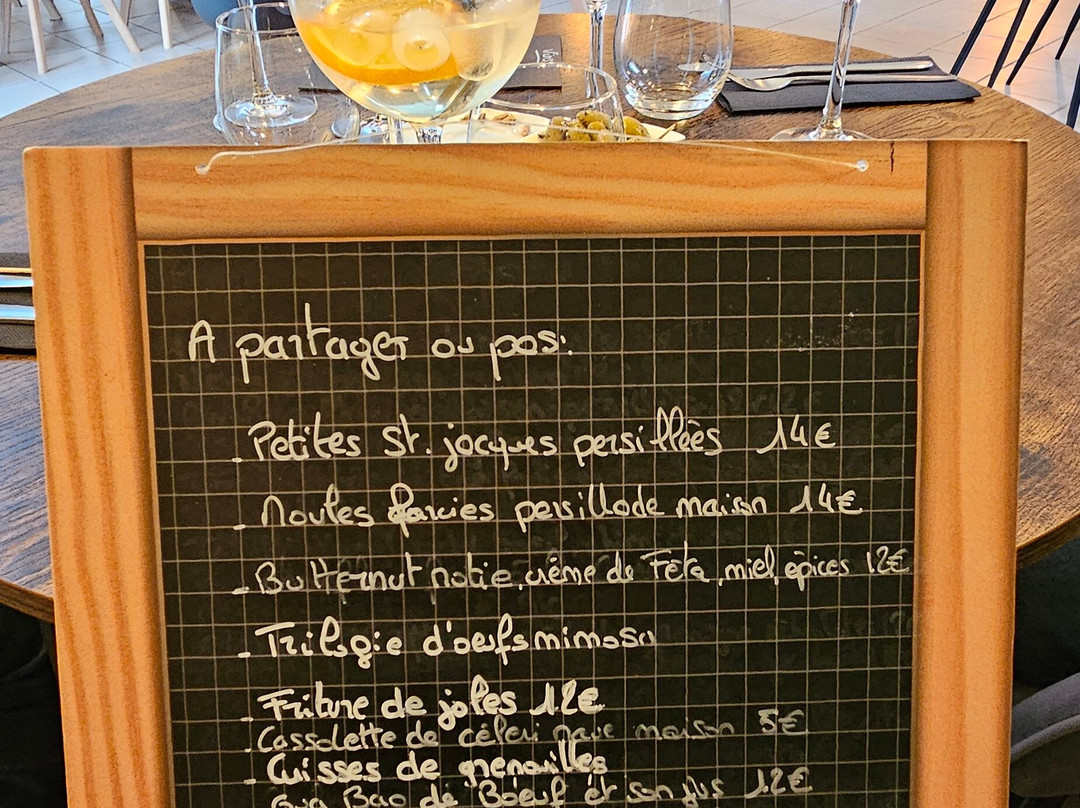 A partager ou pas:
- Petites St. jacques persillées 14€
- Moules farcies persillade maison 14€
- Butternut rotie, crème de Feta, miel, épices 12€
- Trilogie d'oeufs mimosa
- Friture de joles 12€
- Cassolette de céleri rave maison 5€
- Cuisses de grenouilles
Gua Bao de Boeuf et son jus 12€